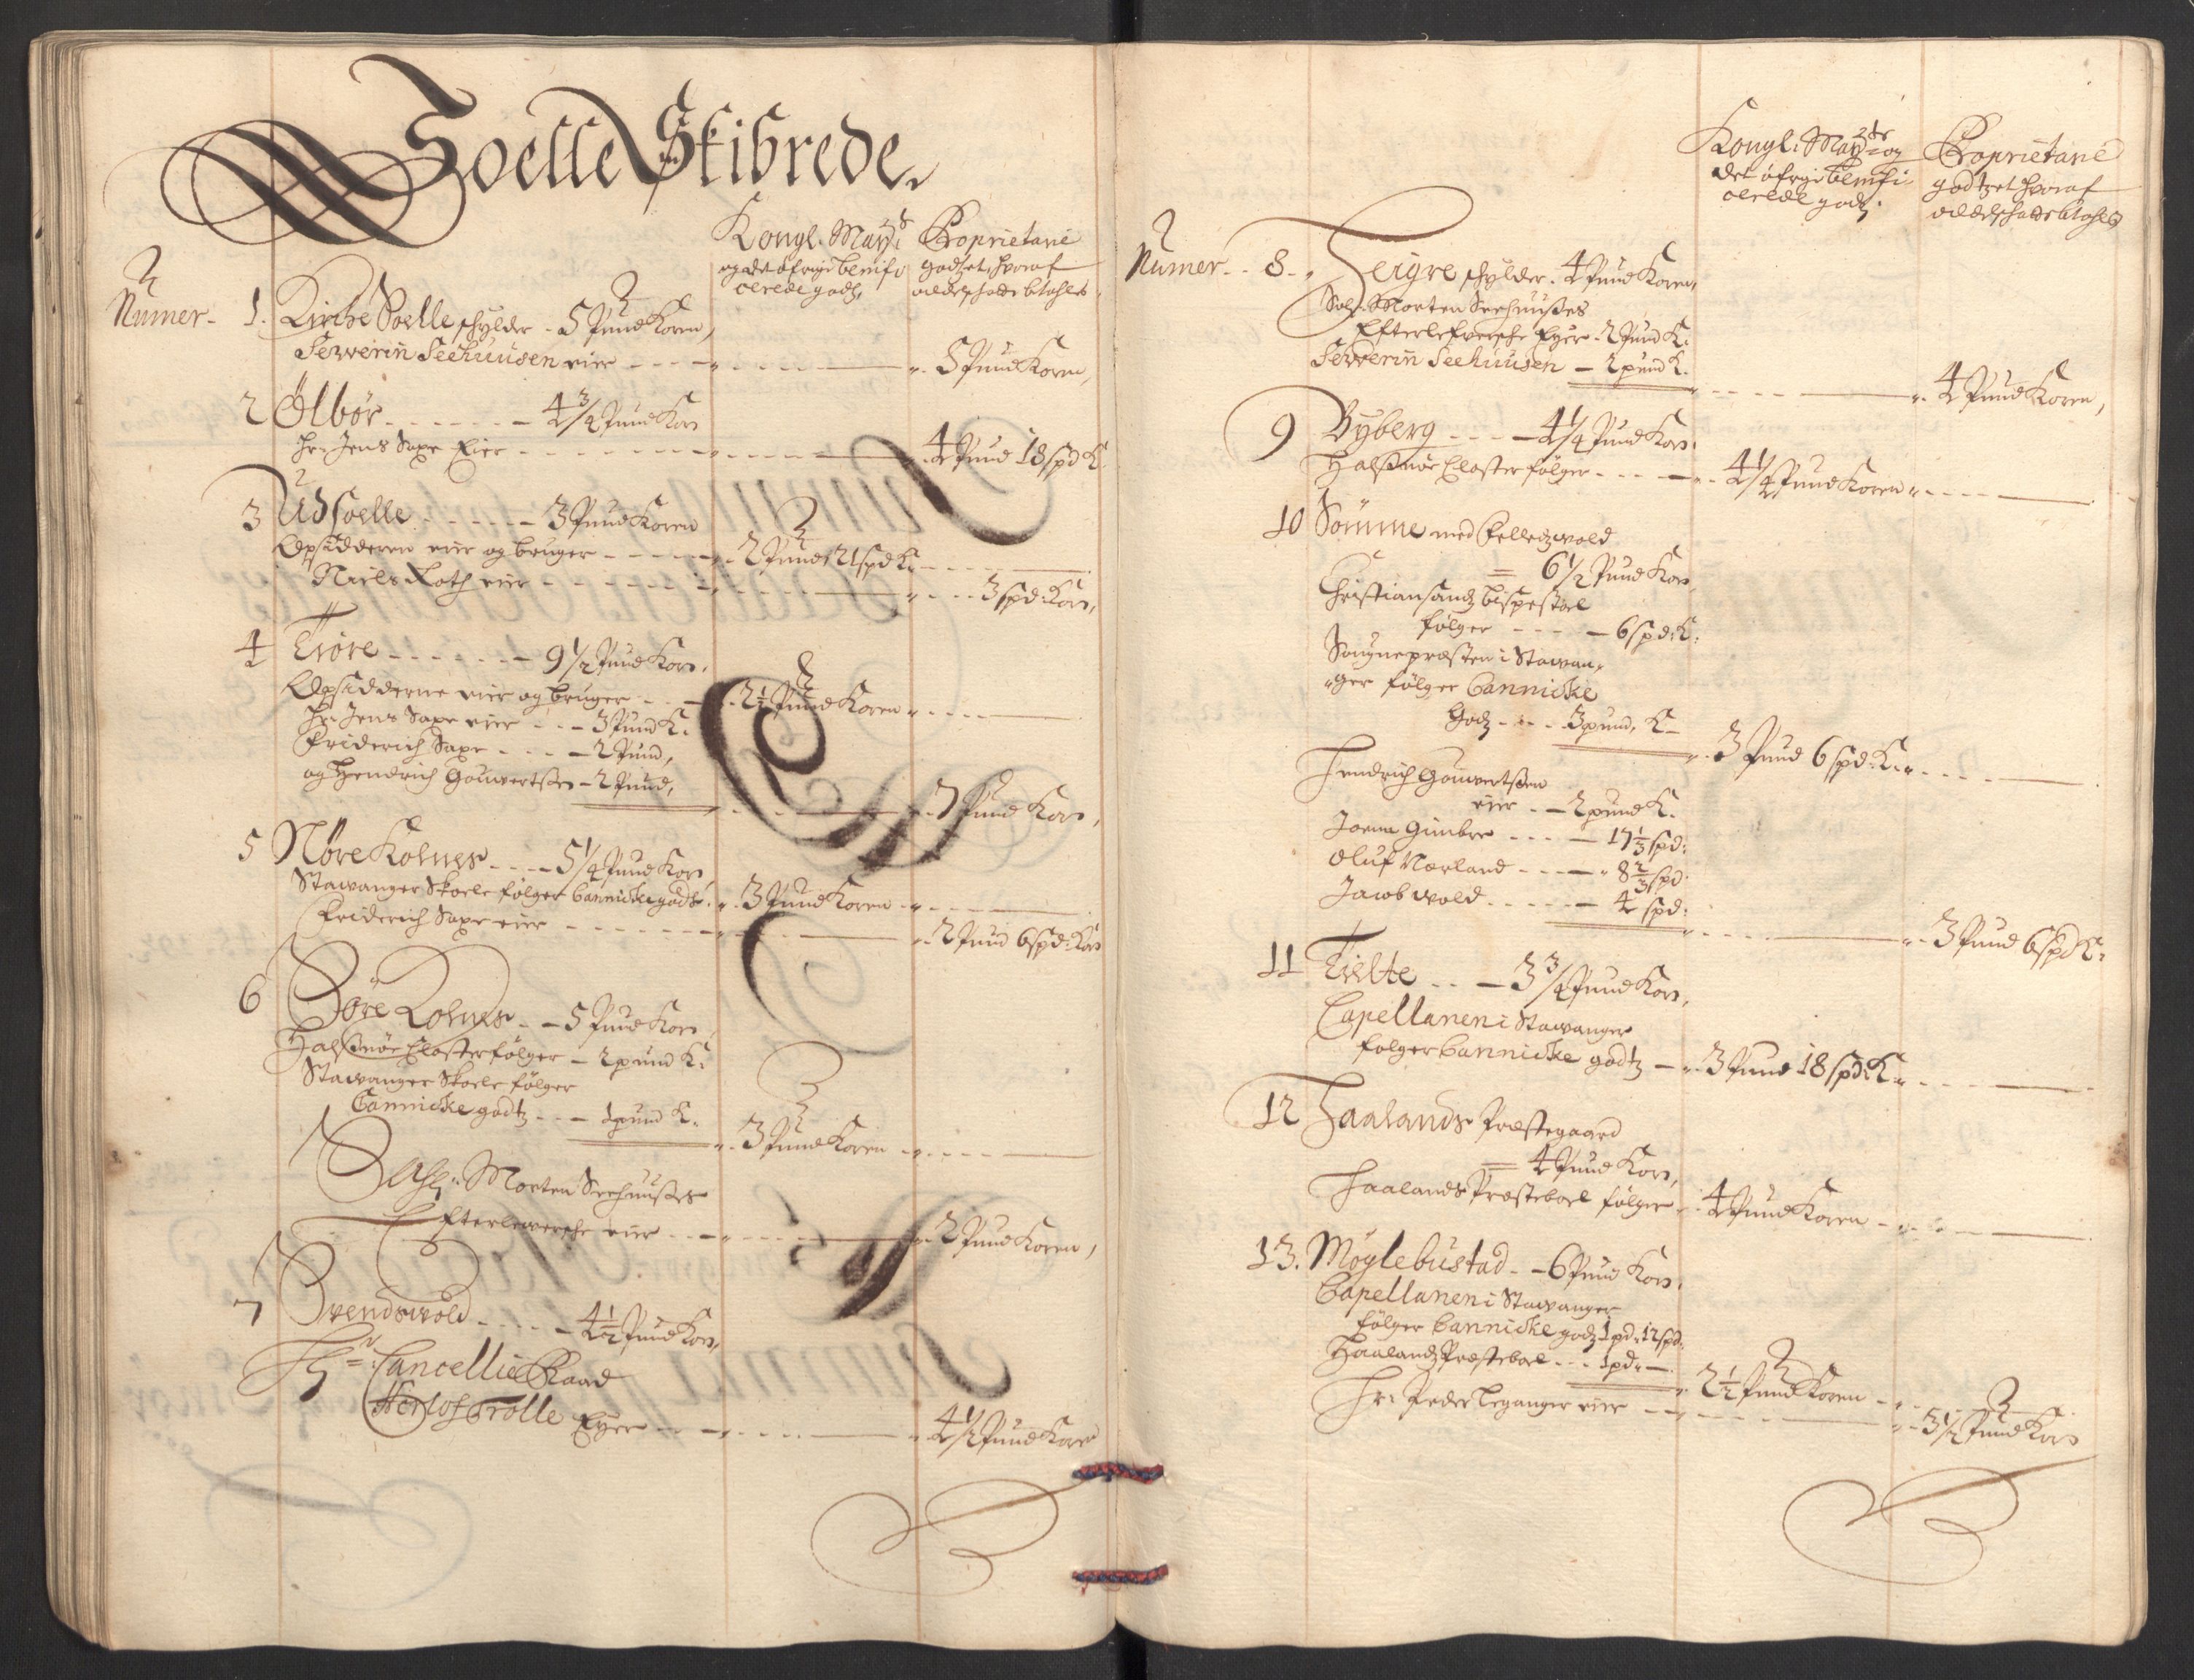 Soelle Skibrede.
Kongl: May:ts
og det öfrige benifi
cerede godz,
Proprietarie
godzet, hvoraf
odelsschatt betahles
Numer - 1. Kirche Soelle schylder - 5 Pund Koren,
Sewerin Seehuusen eier - - - 5 Pund Koren,
2 Ölbör - - - - 4 3/4 Pund Kor
Hr: Jens Saxe Eier - - - 4 Pund 18 spd K
3 Udsoelle - - - - 3 Pund Koren
Opsidderen eier og bruger - - - 2 Pund 21 spd K:
Niels Roth eier - - - 3 spd: Kor,
4 Tiöre - - - - 9 1/2 Pund Kor,
Opsidderne eier og bruger - - - 2 1/2 Pund Koren
Hr: Jens Saxe eier - - - 3 Pund K:
Friderich Saxe - - - 2 Pund,
og Hendrich Gouvertsen - 2 Pund,
7 Pund Kor,
5 Nöre Kolnes - - - 5 1/4 Pund Kor
Stavanger Skoele fölger Cannicke godz - 3 Pund Koren
Friderich Saxe eier - - - 2 Pund 6 spd: Kor
6 Söre Kolnes - - 5 Pund Kor
Halsnöe Closter fölger - 2 pund K:
Stavanger Skoele fölger
Cannicke godtz - - - 1 pund K.
3 Pund Koren
Sahl: Morten Seehuuses
Efterlewersche eier - - - 2 Pund Koren,
7 Grendswold - - - - 4 1/2 Pund Kor,
Hr: Cancellie Raad
Herlof Trolle Eyer - - - 4 1/2 Pund Koren
Kongl: May:ts og
det öfrige benifi
cerede godz.
Proprietarie
godtzet hvoraf
odelsschatt betahles
Numer - - 8 - Teigre schylder - 4 Pund Koren,
Sal: Morten Seehuuses
Efterlefwersche Eyer - 2 Pund K:
Sewerin Seehuusen - 2 pund K.
4 Pund Koren,
9 Byberg - - - - 4 1/4 Pund Kor.
Halsnöe Closter fölger - - - 4 1/4 Pund Koren
10 Sömme med Felletzvold
= 6 1/2 Pund Kor,
Christiansandz bispestoel
fölger - - - - 6 spd: K:
Sougnepræsten i Stavan-
-ger fölger Cannicke
Godz - - - 3 pund, K -
3 Pund 6 spd: K:
Hendrich Gouvertsen
eier - - 2 pund K.
Joren Gimbre - - - - 17 1/3 spd:
Oluf Nærland - - - - 8 2/3 spd
Jacob Vold - - - - - 4 spd:
3 Pund 6 spd K:
11 Tielte - - - 3 3/4 Pund Kor,
Capellanen i Stavanger
fölger Cannicke godtz - 3 Pund 18 spd: K
12 Haalands Præstegaard
= 4 Pund Kor,
Haalands Præsteboel fölger - 4 Pund Koren
13. Möglebustad - - 6 Pund Kor,
Capellanen i Stavanger
fölger Cannicke godz 1 pd: 12 spd:
Haalandz Præsteboel - - - 1 pd: -
2 1/2 Pund Koren
Hr: Peder Leganger eier - - - 3 1/2 Pund Kor